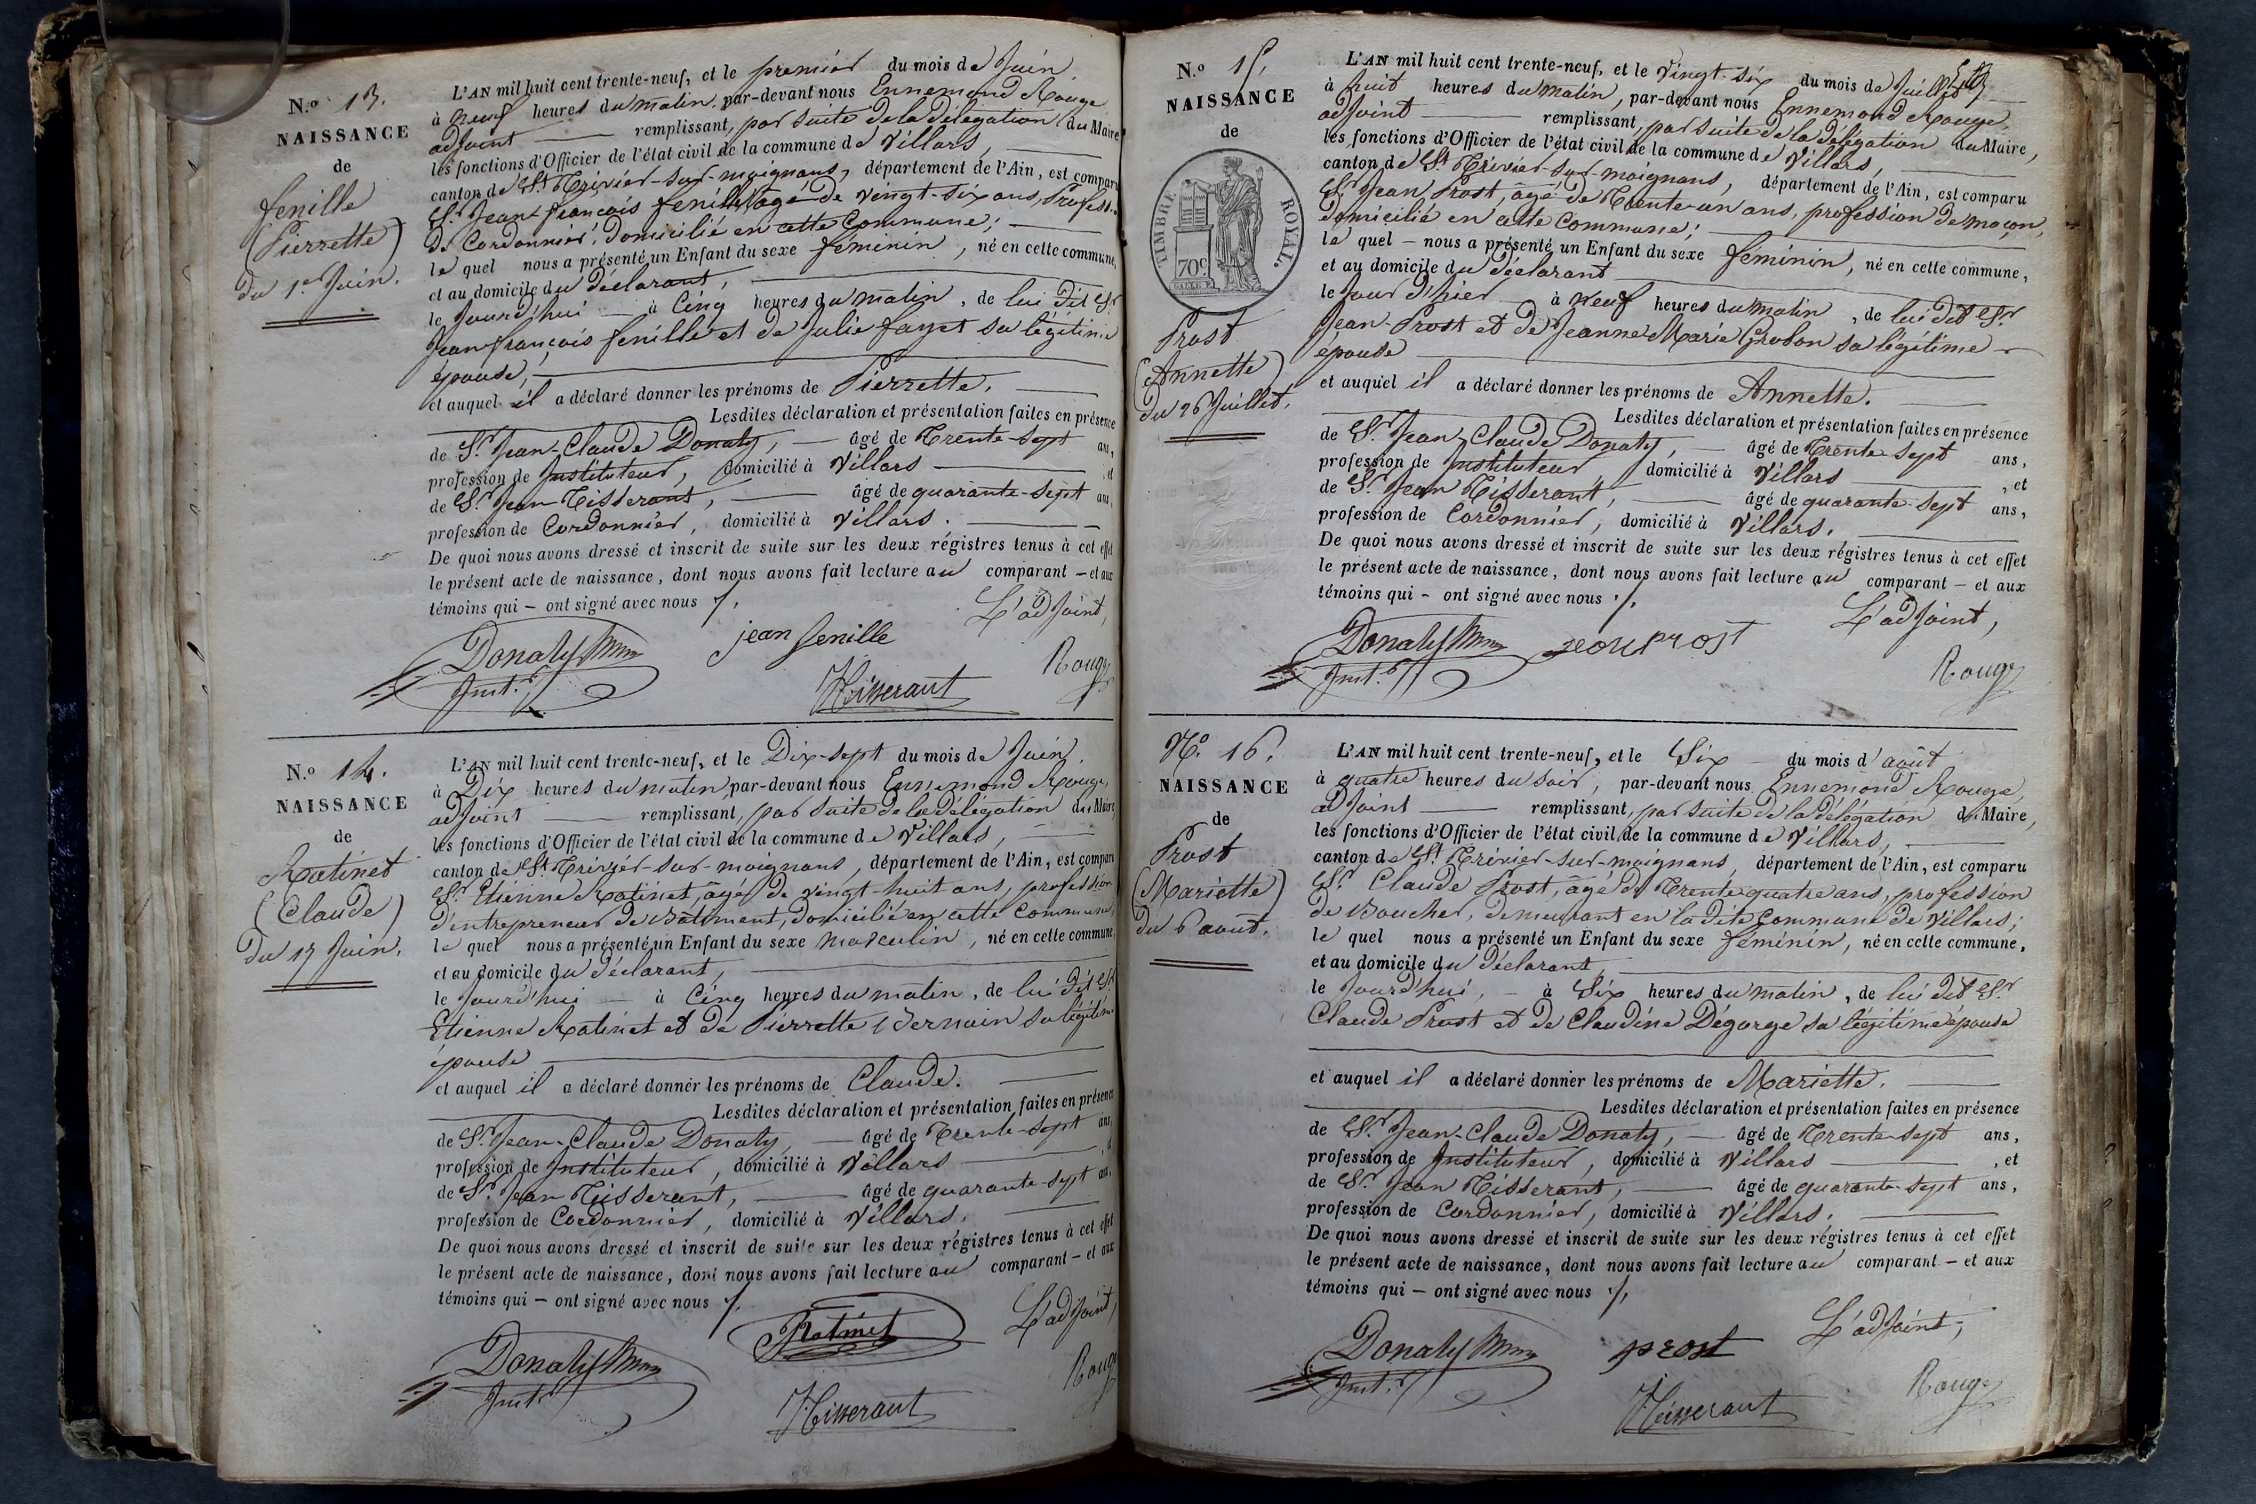 N.o 13.
NAISSANCE
de
fenille
(Pierrette)
du 1er Juin.
L'AN mil huit cent trente-neuf, et le premier du mois de Juin.
à neuf heures du matin, par-devant nous Ennemond Rouge
adjoint remplissant, par suite de la délégation du Maire
les fonctions d'Officier de l'état civil de la commune de Villars,
canton de St Trivier-sur-moignans, département de l'Ain, est comparu
Sr. Jean-françois fenille âgé de vingt-six ans, Profess.
de Cordonnier, Domicilié en cette Commune;
le quel nous a présenté un Enfant du sexe féminin, né en cette commune,
et au domicile du déclarant,
le Jourd'hui à Cinq heures du matin, de lui dit Sr
Jean françois fenille et de Julie fayet sa légitime
épouse,
et auquel il a déclaré donner les prénoms de Pierrette.
Lesdites déclaration et présentation faites en présence
de Sr. Jean-Claude Donaty, âgé de Trente-sept ans,
profession de Instituteur, domicilié à Villars , et
de Sr. Jean Tisserant, âgé de quarante-sept ans,
profession de Cordonnier, domicilié à Villars.
De quoi nous avons dressé et inscrit de suite sur les deux régistres tenus à cet effet
le présent acte de naissance, dont nous avons fait lecture au comparant - et aux
témoins qui - ont signé avec nous ./.
L'adjoint,
Donaty
jean fenille
Rouge
Inst.r
Tisserant
N.o 14.
NAISSANCE
de
Ratinet
(Claude)
du 17 Juin.
L'AN mil huit cent trente-neuf, et le Dix-sept du mois de Juin.
à Dix heures du matin par-devant nous Ennemond Rouge,
adjoint remplissant, par suite de la délégation du Maire
les fonctions d'Officier de l'état civil de la commune de Villars,
canton de St Trivier-sur-moignans, département de l'Ain, est comparu
Sr. Etienne Ratinet, âgé de vingt-huit ans, profession
d'entrepreneur de Bâtiment, domicilié en cette commune,
le quel nous a présenté un Enfant du sexe masculin, né en cette commune
et au domicile du déclarant,
le Jourd'hui à Cinq heures du matin, de lui dit Sr
Etienne Ratinet et de Pierrette Vernain sa légitime
épouse
et auquel il a déclaré donner les prénoms de Claude.
Lesdites déclaration et présentation faites en présence
de Sr. Jean-Claude Donaty, âgé de Trente-sept ans,
profession de Instituteur, domicilié à Villars , et
de Sr. Jean Tisserant, âgé de quarante-sept ans,
profession de Cordonnier, domicilié à Villars.
De quoi nous avons dressé et inscrit de suite sur les deux régistres tenus à cet effet
le présent acte de naissance, dont nous avons fait lecture au comparant - et aux
témoins qui - ont signé avec nous ./.
L'adjoint,
Ratinet
Donaty
Rouge
Inst.r
Tisserant
N.o 15.
NAISSANCE
de
TIMBRE ROYAL.
70c.
Prost
(Annette)
du 26 Juillet.
L'AN mil huit cent trente-neuf, et le Vingt-six du mois de Juillet
à huit heures du matin, par-devant nous Ennemond Rouge,
adjoint remplissant, par suite de la délégation du Maire,
les fonctions d'Officier de l'état civil de la commune de Villars,
canton de St Trivier-sur-moignans, département de l'Ain, est comparu
Sr Jean Prost, âgé de Trente-un ans, profession de maçon,
domicilié en cette Commune;
le quel - nous a présenté un Enfant du sexe féminin, né en cette commune,
et au domicile du déclarant
le Jour d'hier à neuf heures du matin, de lui dit Sr
Jean Prost et de Jeanne Marie Grobon sa légitime
épouse
et auquel il a déclaré donner les prénoms de Annette.
Lesdites déclaration et présentation faites en présence
de Sr. Jean-Claude Donaty, âgé de Trente-sept ans,
profession de Instituteur, domicilié à Villars , et
de Sr. Jean Tisserant, âgé de quarante-sept ans,
profession de Cordonnier, domicilié à Villars.
De quoi nous avons dressé et inscrit de suite sur les deux régistres tenus à cet effet
le présent acte de naissance, dont nous avons fait lecture au comparant - et aux
témoins qui - ont signé avec nous ./.
L'adjoint,
Donaty
jean prost
Rouge
Inst.r
N.o 16.
NAISSANCE
de
Prost
(Mariette)
du 6 août.
L'AN mil huit cent trente-neuf, et le Six du mois d'août
à quatre heures du soir, par-devant nous Ennemond Rouge,
adjoint remplissant, par suite de la délégation du Maire,
les fonctions d'Officier de l'état civil de la commune de Villars,
canton de St Trivier-sur-moignans, département de l'Ain, est comparu
Sr. Claude Prost, âgé de Trente quatre ans, profession
de Boucher, demeurant en la dite Commune de Villars;
le quel nous a présenté un Enfant du sexe féminin, né en cette commune,
et au domicile du déclarant
le Jourd'hui, à Six heures du matin, de lui dit Sr
Claude Prost et de Claudine Dégorge sa légitime épouse
et auquel il a déclaré donner les prénoms de Mariette.
Lesdites déclaration et présentation faites en présence
de Sr. Jean-Claude Donaty, âgé de Trente-sept ans,
profession de Instituteur, domicilié à Villars , et
de Sr. Jean Tisserant, âgé de quarante-sept ans,
profession de Cordonnier, domicilié à Villars.
De quoi nous avons dressé et inscrit de suite sur les deux régistres tenus à cet effet
le présent acte de naissance, dont nous avons fait lecture au comparant - et aux
témoins qui - ont signé avec nous ./.
L'adjoint,
Donaty
prost
Rouge
Inst.r
Tisserant